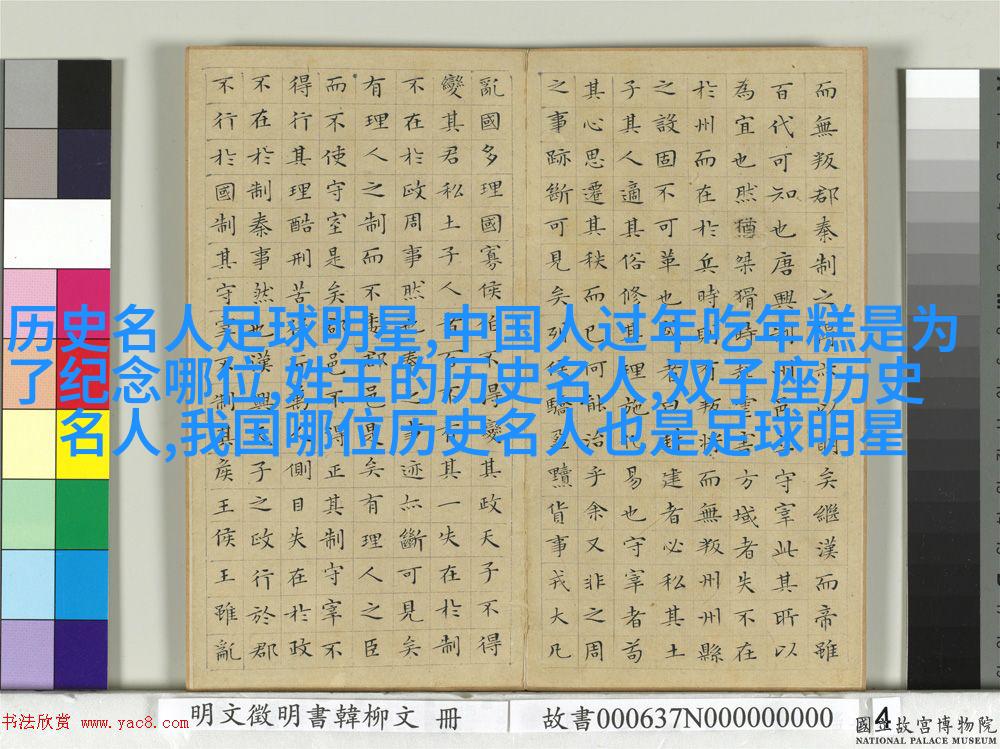 而無叛郡秦制之得亦以明矣繼漢而帝雖
百代可知也唐興制州邑立守宰此其所以
為宜也然猶桀猾時起虐害方域者失不在
於州而在於兵時則有叛將而無叛州州縣
之設固不可革也或者曰封建者必私其土
子其人適其俗修其理施化易也守宰者苟
其心思遷其秩而已何能治乎余又非之周
之事跡斷可見矣列侯驕盈黷貨事戎大凡
亂國多理國寡侯伯不得變其政天子不得
變其君私土子人者百不有其一失在於制
不在於政周事然也秦之事迹亦斷可見矣
有理人之制而不委郡邑是矣有理人之臣
而不使守室是矣郡邑不得正其制守宰不
得行其理酷刑苦役而萬人側目失在於政
不在於制秦事然也漢興天子之政行於郡
不行於國制其守宰不制其侯王侯王雖亂
历史名人足球明星,中国人过年吃年糕是为
了纪念哪位,姓王的历史名人,双子座历史
名人,我国哪位历史名人也是足球明星
书法欣赏 www.yac8.com
明文徵明書韓柳文 冊
故書000637N000000000 4
國立故宮博物院
NATIONAL PALACE MUSEUM